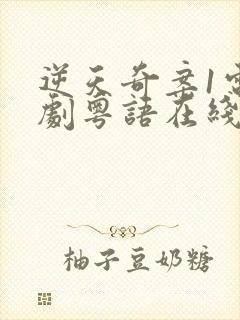 逆天奇案1電
劇粵語在綫
柚子豆奶糖